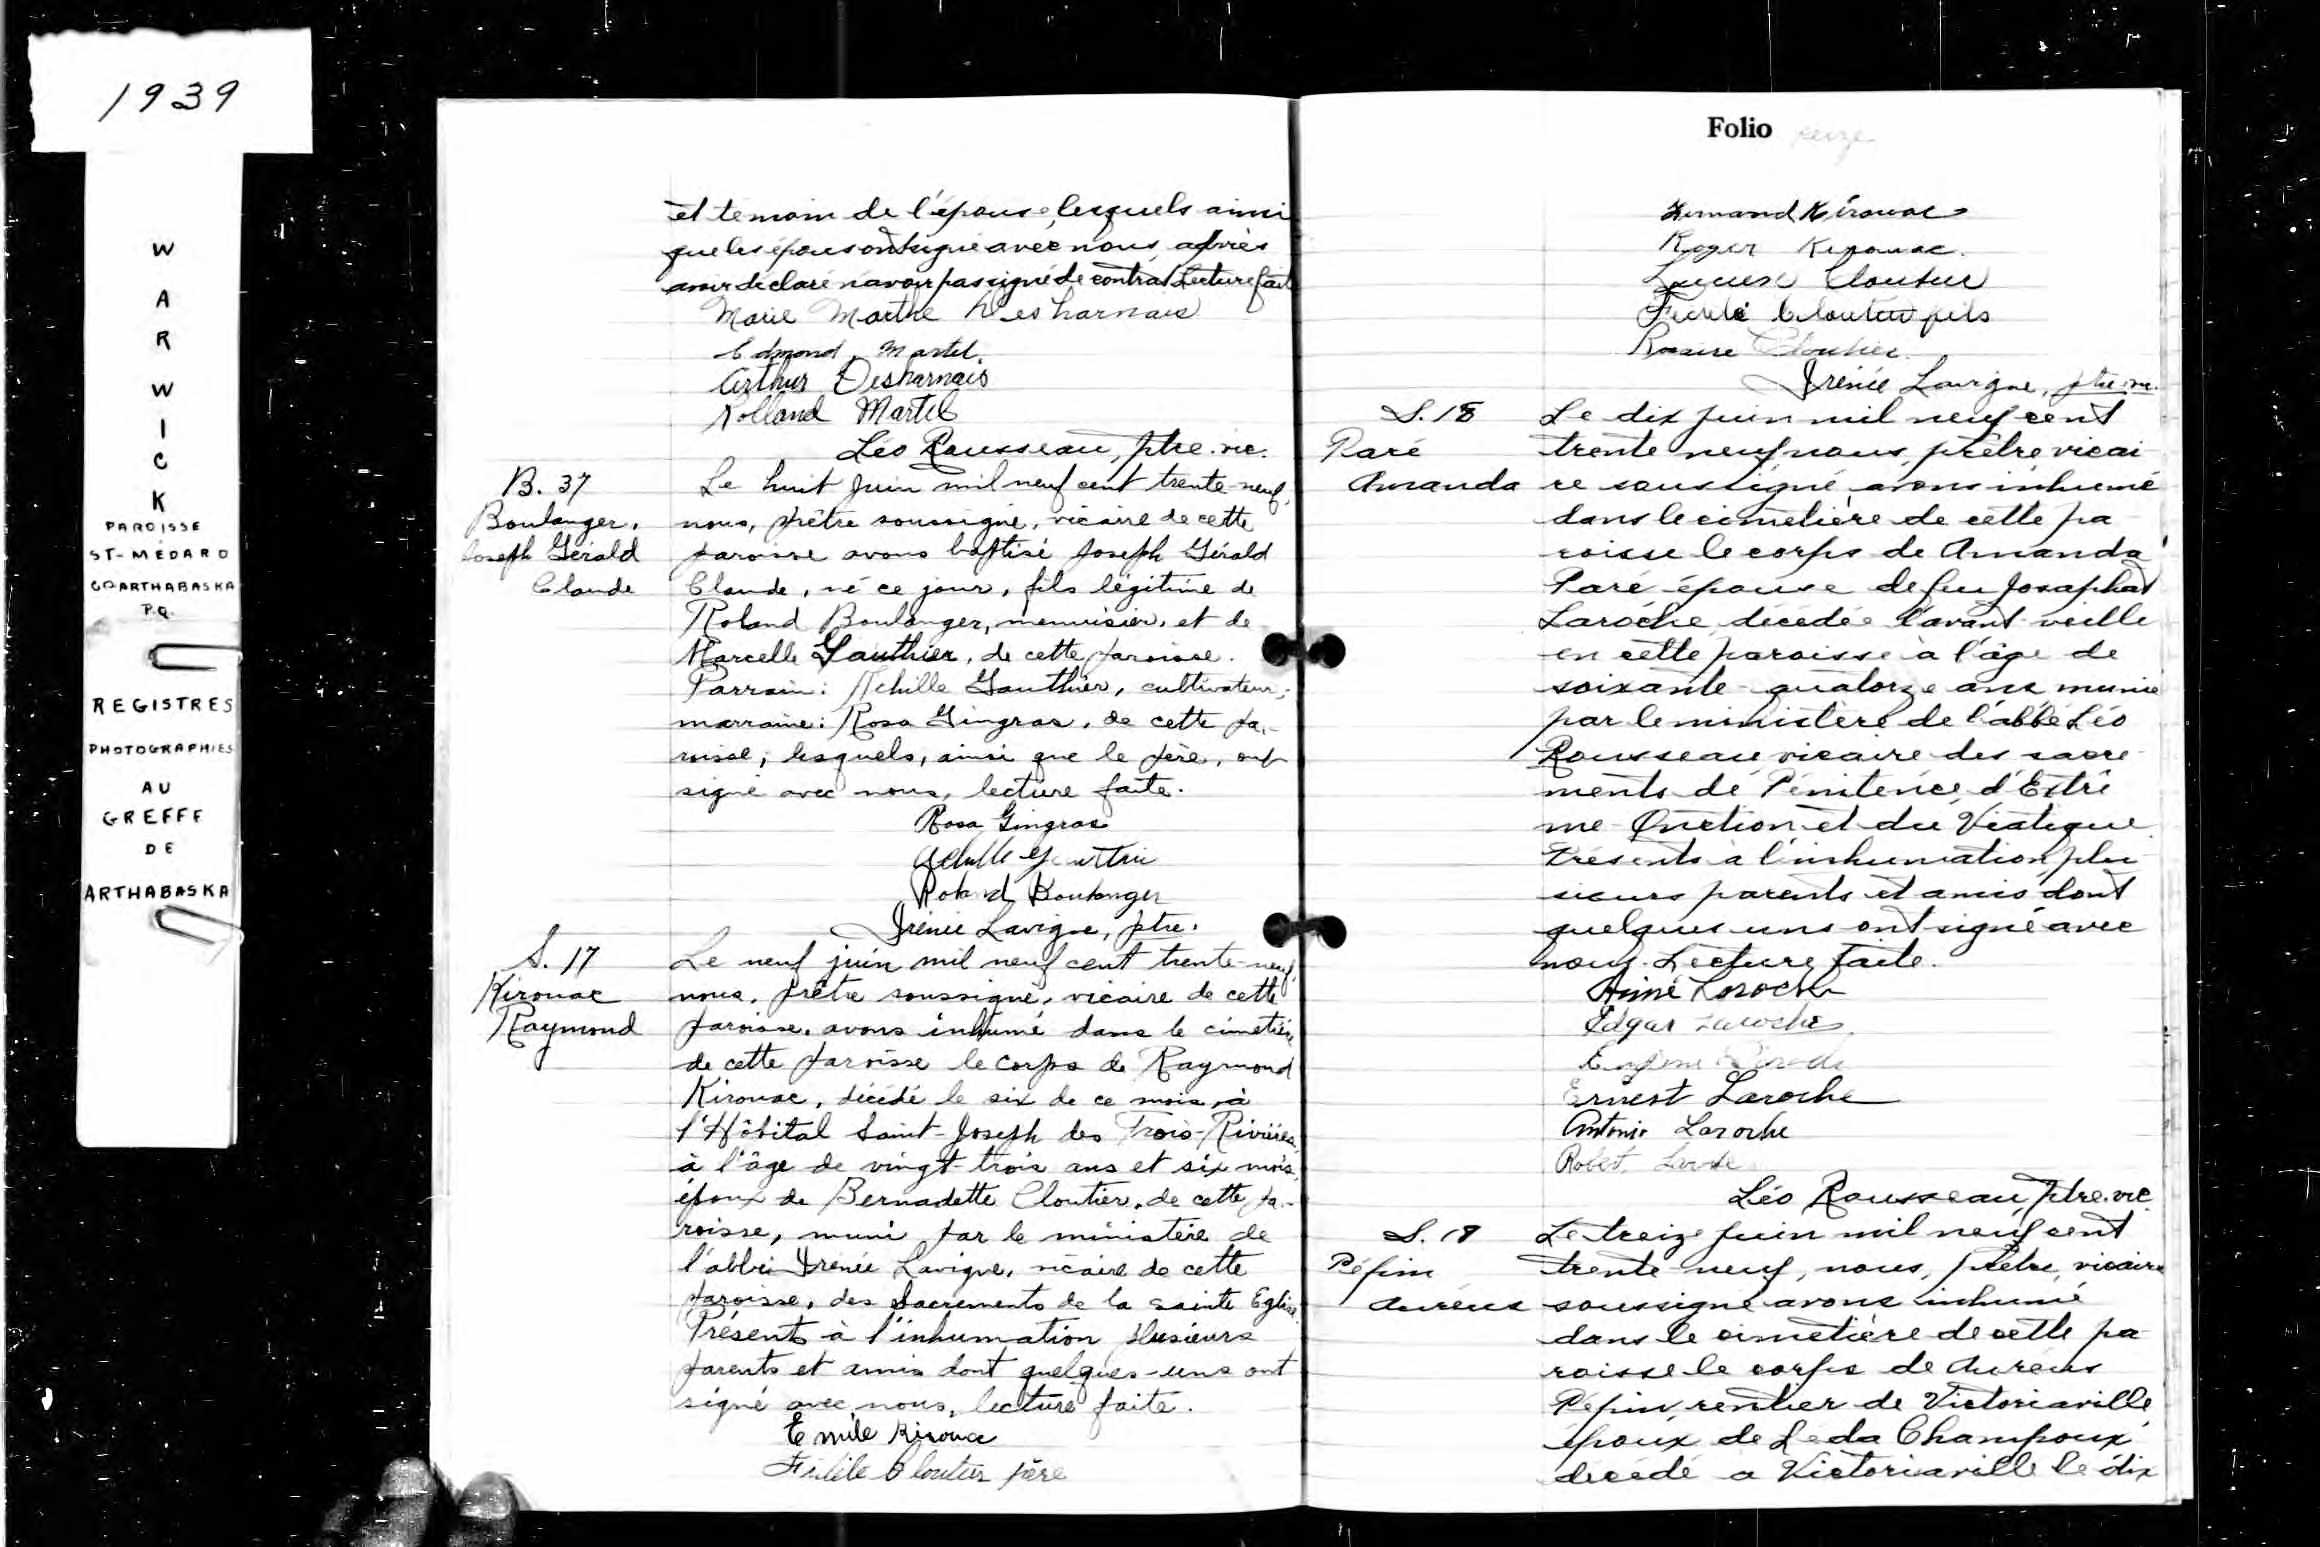 1939
W
A
R
W
I
C
K
PAROISSE
ST-MÉDARD
CO ARTHABASKA
P.Q.
REGISTRES
PHOTOGRAPHIES
AU
GREFFE
DE
ARTHABASKA
et temoin de l'épouse, lesquels ainsi
que les époux ont signé avec nous après
avoir déclaré n'avoir pas signé de contrat Lecture fait
Marie Marthe Desharnais
Edmond Martel.
Arthur Desharnais
Rolland Martel
Léo Rousseau, ptre. vic.
B. 37
Boulanger,
Joseph Gérald
Claude
Le huit juin mil neuf cent trente-neuf,
nous, prêtre soussigné, vicaire de cette
paroisse avons baptisé Joseph Gérald
Claude, né ce jour, fils légitime de
Roland Boulanger, menuisier, et de
Marcelle Gauthier, de cette paroisse.
Parrain: Achille Gauthier, cultivateur;
marraine: Rosa Gingras, de cette pa-
roisse; lesquels, ainsi que le père, ont
signé avec nous, lecture faite.
Rosa Gingras
Achille Gauthier
Roland Boulanger
Irénée Lavigne, ptre.
S. 17
Kirouac
Raymond
Le neuf juin mil neuf cent trente-neuf,
nous, prêtre soussigné, vicaire de cette
paroisse, avons inhumé dans le cimetière
de cette paroisse le corps de Raymond
Kirouac, décédé le six de ce mois, à
l'Hôpital Saint-Joseph des Trois-Rivières,
à l'âge de vingt-trois ans et six mois,
époux de Bernadette Cloutier, de cette pa-
roisse, muni par le ministère de
l'abbé Irénée Lavigne, vicaire de cette
paroisse, des Sacrements de la sainte Eglise.
Présents à l'inhumation plusieurs
parents et amis dont quelques-uns ont
signé avec nous, lecture faite.
Emile Kirouac
Fidèle Cloutier père
Folio seize
Fernand Kirouac
Roger Kirouac.
Lucien Cloutier
Fidèle Cloutier fils
Rosaire Cloutier
Irénée Lavigne, ptre vic.
S. 18
Paré
Amanda
Le dix juin mil neuf cent
trente neuf nous, prêtre, vicai
re soussigné, avons inhumé
dans le cimetière de cette pa
roisse le corps de Amanda
Paré épouse de feu Josaphat
Laroche décédée l'avant-veille
en cette paroisse à l'âge de
soixante-quatorze ans munie
par le ministère de l'abbé Léo
Rousseau vicaire des sacre
ments de Pénitence, d'Extrê
me-Onction et du Viatique.
Présents à l'inhumation, plu
sieurs parents et amis dont
quelques uns ont signé avec
nous. Lecture faite.
Aimé Laroche
Edgar Laroche
Ernest Laroche
Antonio Laroche
Robert Laroche
Léo Rousseau, ptre. vic
S. 19
Pépin
Auréus
Le treize juin mil neuf cent
trente-neuf, nous, prêtre, vicaire
soussigné avons inhumé
dans le cimetière de cette pa
roisse le corps de Auréus
Pépin, rentier de Victoriaville,
époux de Leda Champoux
décédé a Victoriaville le dix